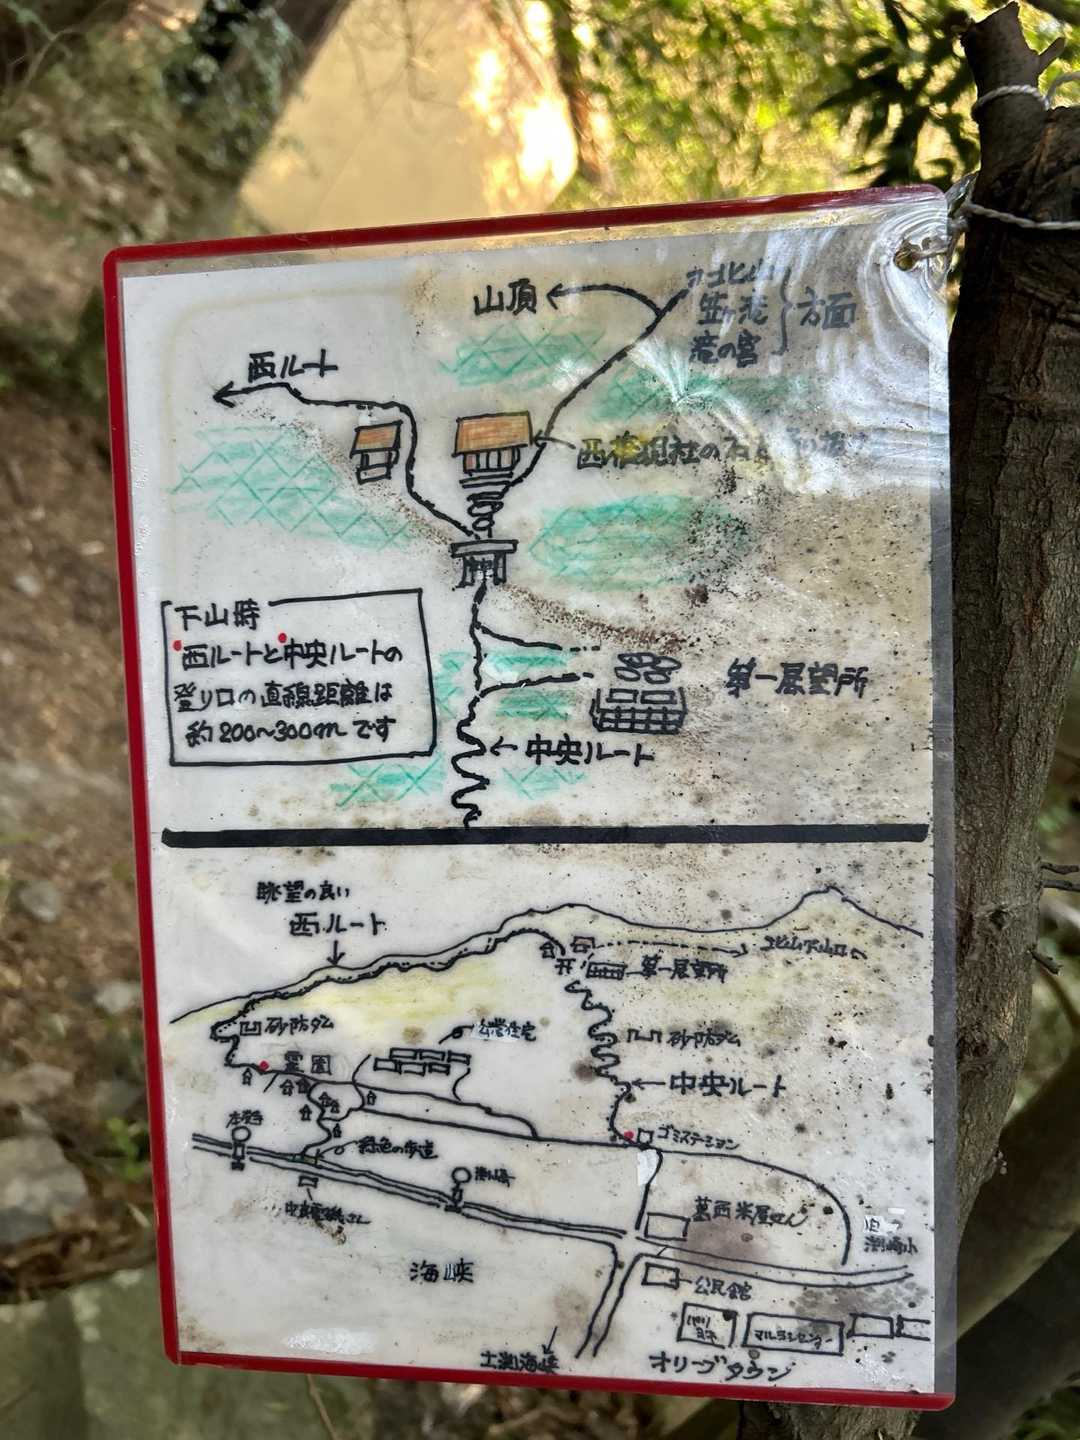 山頂
北山
笠ヶ滝
滝の宮
方面
西ルート
下山時
西ルートと中央ルートの
登り口の直線距離は
約200〜300mです
第一展望所
中央ルート
眺望の良い
西ルート
第一展望所
砂防ダム
砂防ダム
公営住宅
霊園
中央ルート
ゴミステーション
緑色の歩道
葛西米屋さん
旧
渕崎小
海峡
公民館
土渕海峡
マルヨシセンター
オリーブタウン